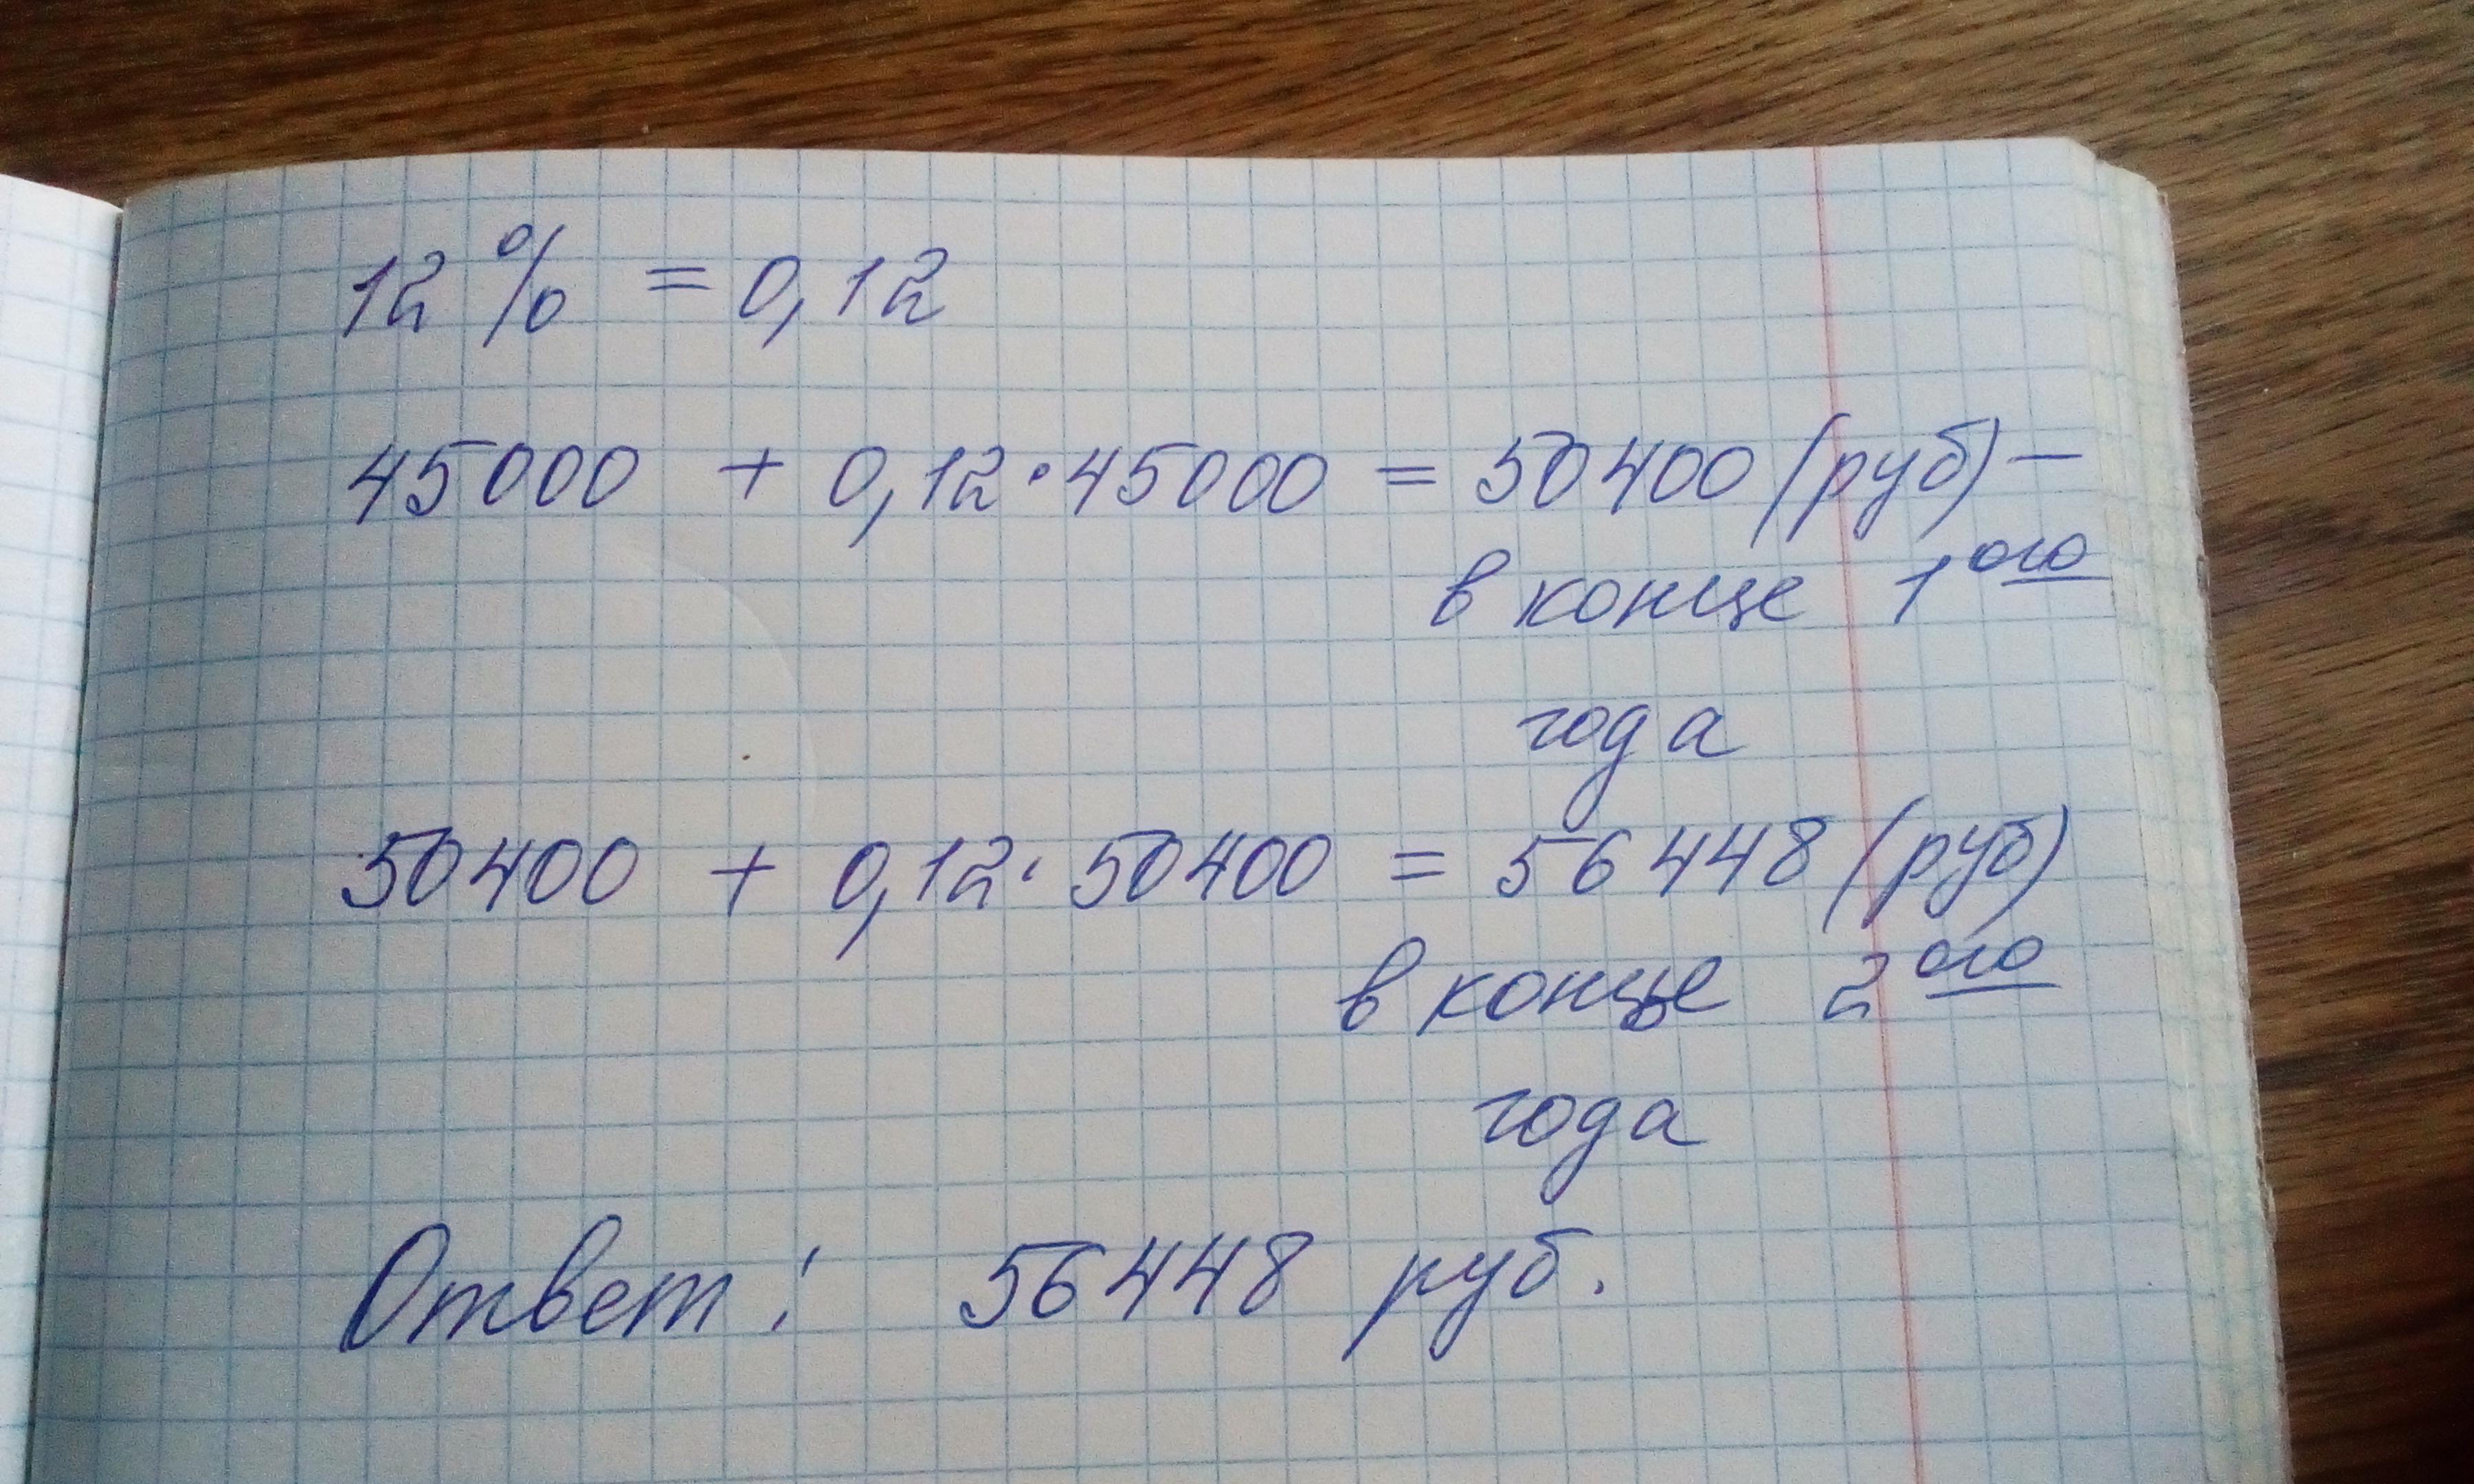 12 % = 0,12
45000 + 0,12·45000 = 50400 (руб) –
в конце 1ого
года
50400 + 0,12· 50400 = 56448 (руб)
в конце 2ого
года
Ответ: 56448 руб.